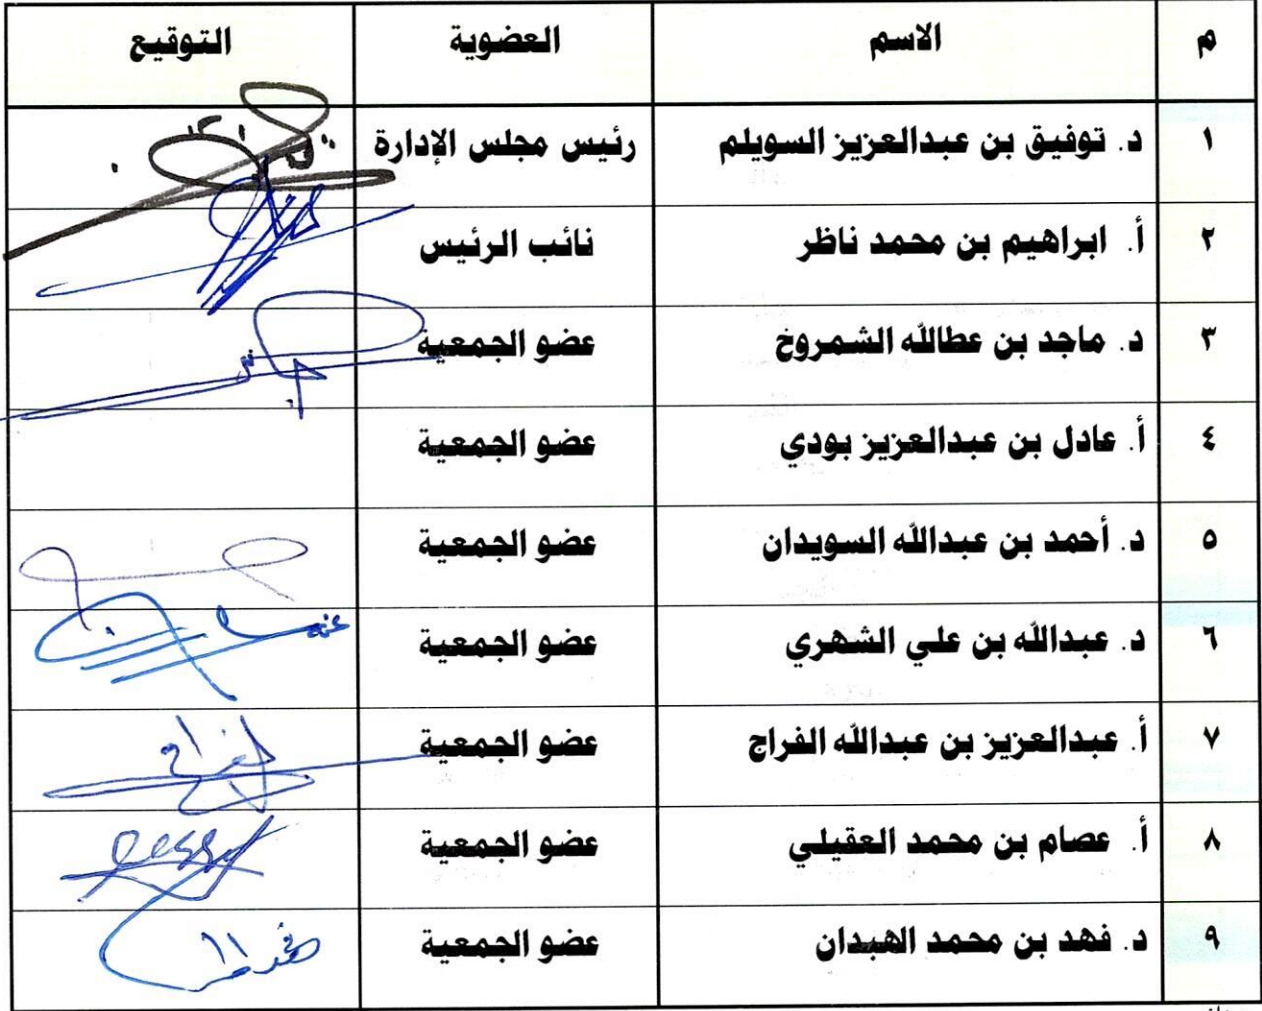 م الاسم العضوية التوقيع
١ د. توفيق بن عبدالعزيز السويلم رئيس مجلس الإدارة
٢ أ. ابراهيم بن محمد ناظر نائب الرئيس
٣ د. ماجد بن عطالله الشمروخ عضو الجمعية
٤ أ. عادل بن عبدالعزيز بودي عضو الجمعية
٥ د. أحمد بن عبدالله السويدان عضو الجمعية
٦ د. عبدالله بن علي الشهري عضو الجمعية
٧ أ. عبدالعزيز بن عبدالله الفراج عضو الجمعية
٨ أ. عصام بن محمد العقيلي عضو الجمعية
٩ د. فهد بن محمد الهبدان عضو الجمعية